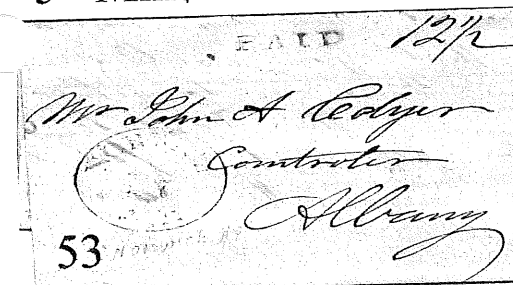 PAID 12½
Mr John A Colyer
Comtroler
Albany
53